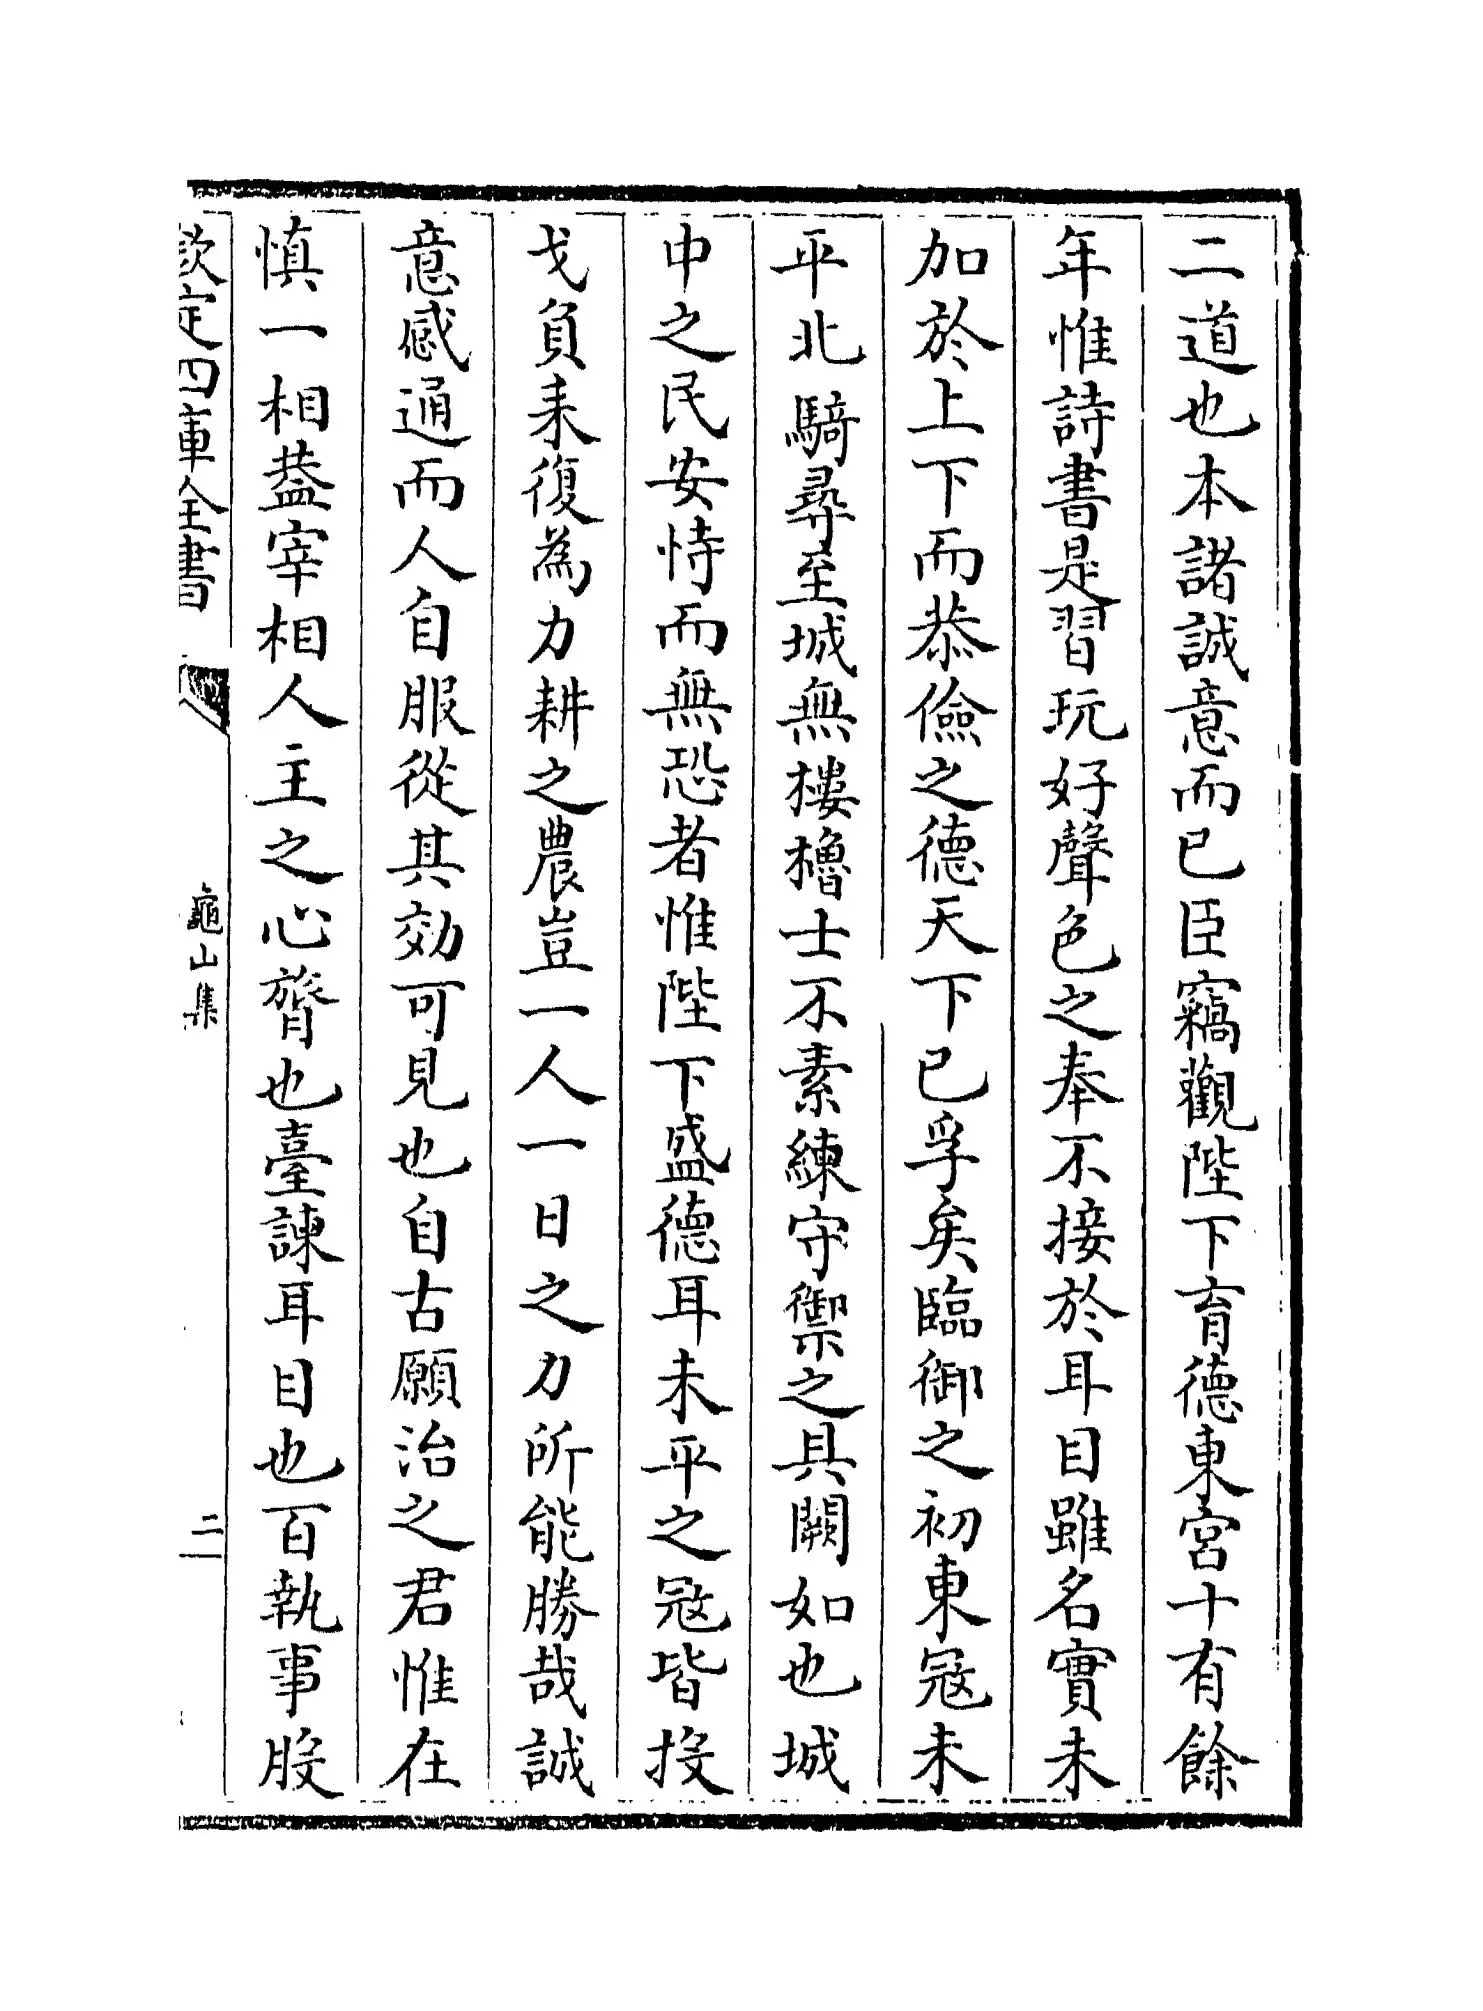 二道也本諸誠意而已臣竊觀陛下育德東宮十有餘
年惟詩書是習玩好聲色之奉不接於耳目雖名實未
加於上下而恭儉之德天下已孚矣臨御之初東冦未
平北騎尋至城無樓櫓士不素練守禦之具闕如也城
中之民安恃而無恐者惟陛下盛德耳未平之冦皆投
戈負耒復為力耕之農豈一人一日之力所能勝哉誠
意感通而人自服從其効可見也自古願治之君惟在
慎一相葢宰相人主之心膂也臺諫耳目也百執事股
欽定四庫全書
龜山集
二